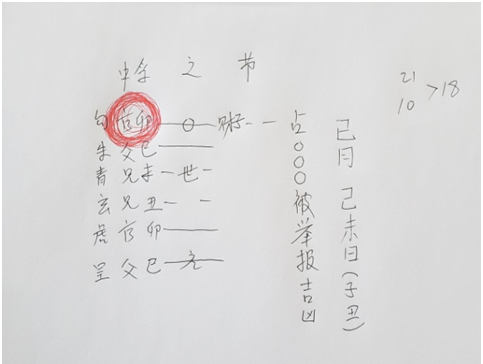 中孚之节
勾官卯——○—— 财子- -
朱父巳——
青兄未-世-
玄兄丑- -
虎官卯——
父巳——
占〇〇〇被举报吉凶
巳月 己未日(子丑)
21
10 >18